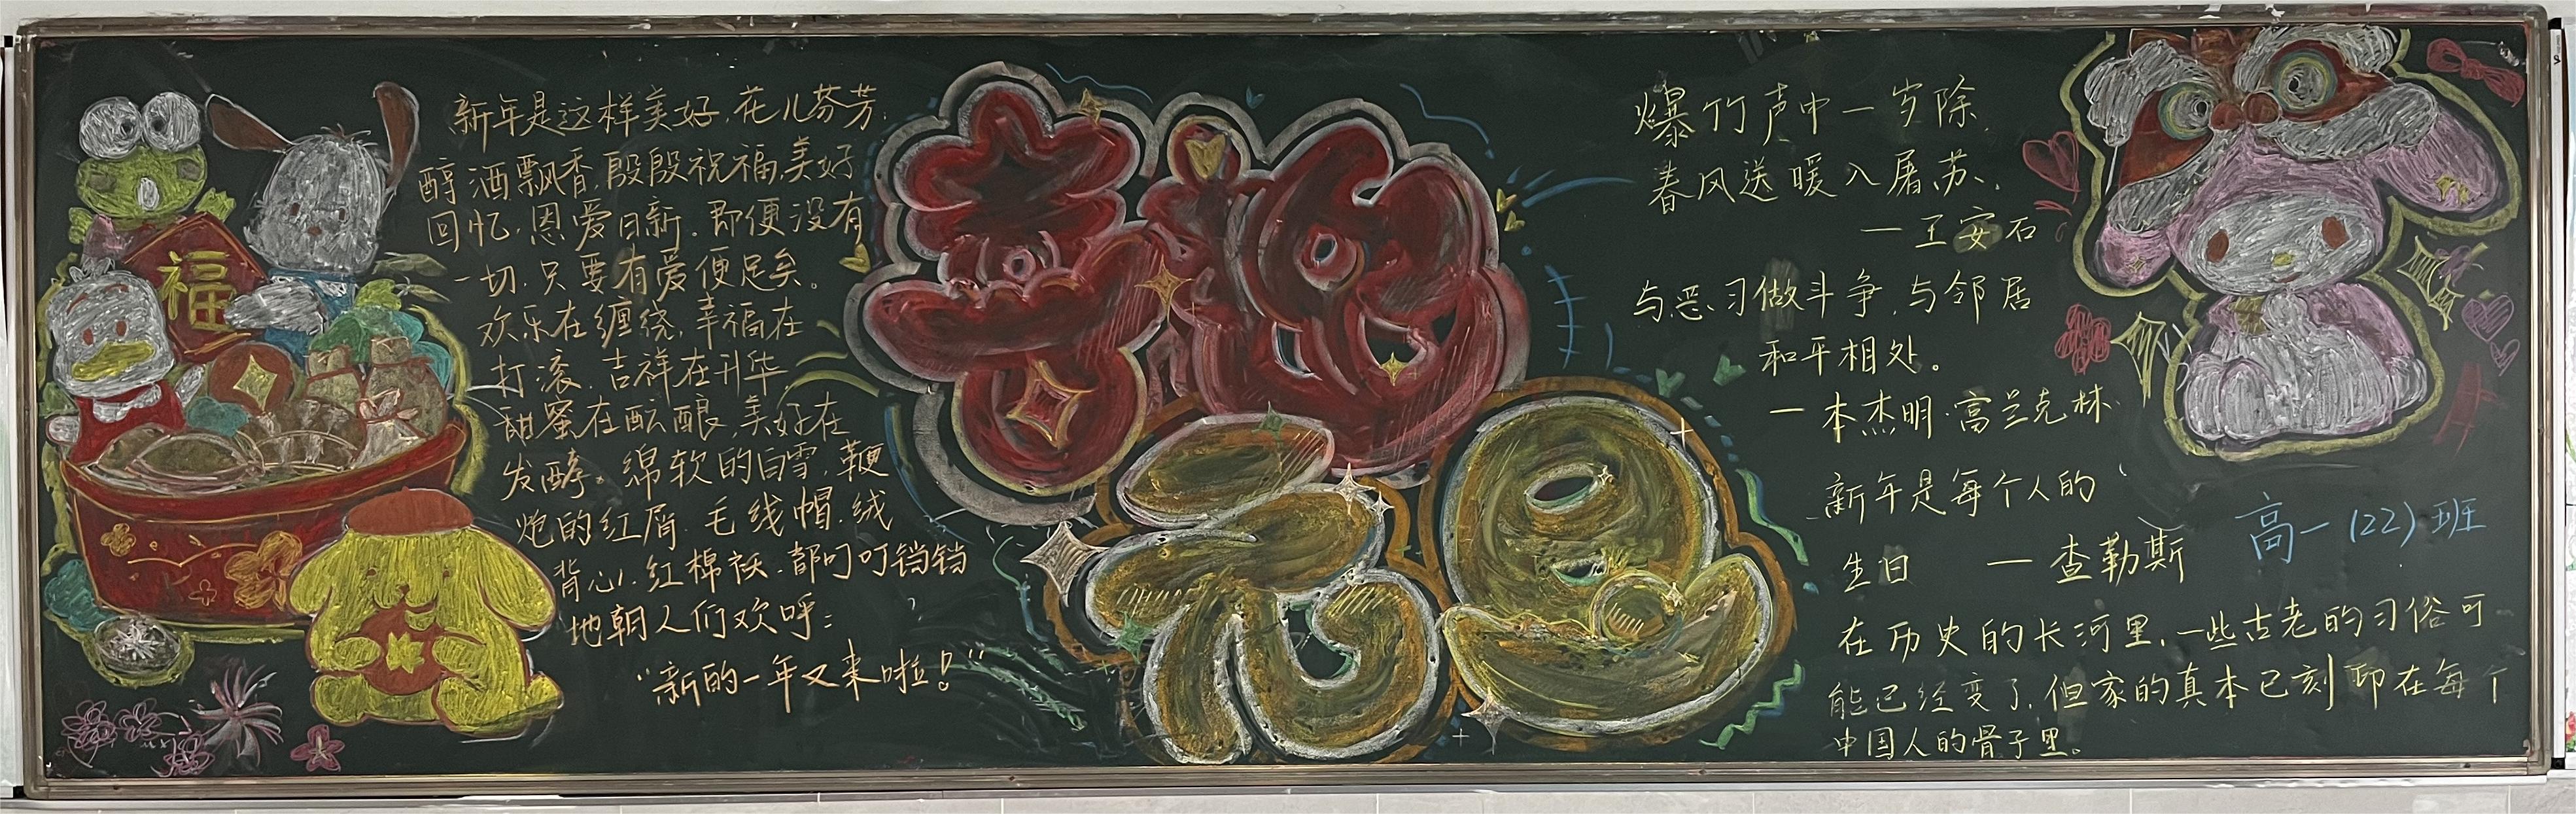 福
新年是这样美好,花儿芬芳,
醇酒飘香,殷殷祝福,美好
回忆,恩爱日新,即便没有
一切,只要有爱便足矣。
欢乐在缠绕,幸福在
打滚,吉祥在升华
甜蜜在酝酿,美好在
发酵。绵软的白雪,鞭
炮的红屑,毛线帽,绒
背心,红棉袄,都叮叮铛铛
地朝人们欢呼:
“新的一年又来啦!”
喜迎
元旦
爆竹声中一岁除,
春风送暖入屠苏、
—王安石
与恶习做斗争,与邻居
和平相处。
—本杰明·富兰克林
新年是每个人的
生日 —查勒斯
高一(22)班
在历史的长河里,一些古老的习俗可
能已经变了,但家的真本已刻印在每个
中国人的骨子里。